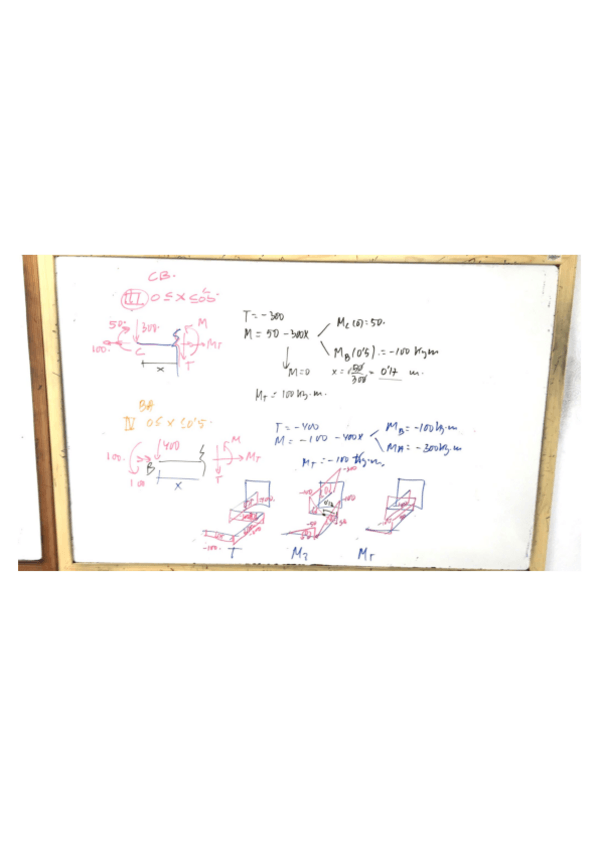 CB.
III 0 ≤ x ≤ 0'5.
50. 300. M
100. C MT
x T
T = -300
M = 50 - 300x
Mc(0) = 50.
MB(0'5) = -100 kg.m
M=0 x = 50/300 = 0'17 m.
MT = 100 kg.m.
BA
IV 0 ≤ x ≤ 0.5.
100. 400 M
B MT
100 x T
T = -400
M = -100 - 400x
MB = -100 kg.m
MA = -300 kg.m
MT = -100 kg.m.
-100.
T MZ MT